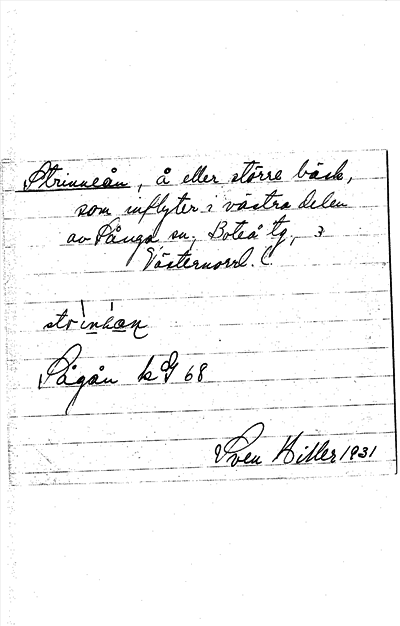 Strinneån, å eller större bäck,
som inflyter i västra delen
av Långa sn, Boteå tg,
Västernorrl. l.
Sågån kå 68
Sven Hiller 1931